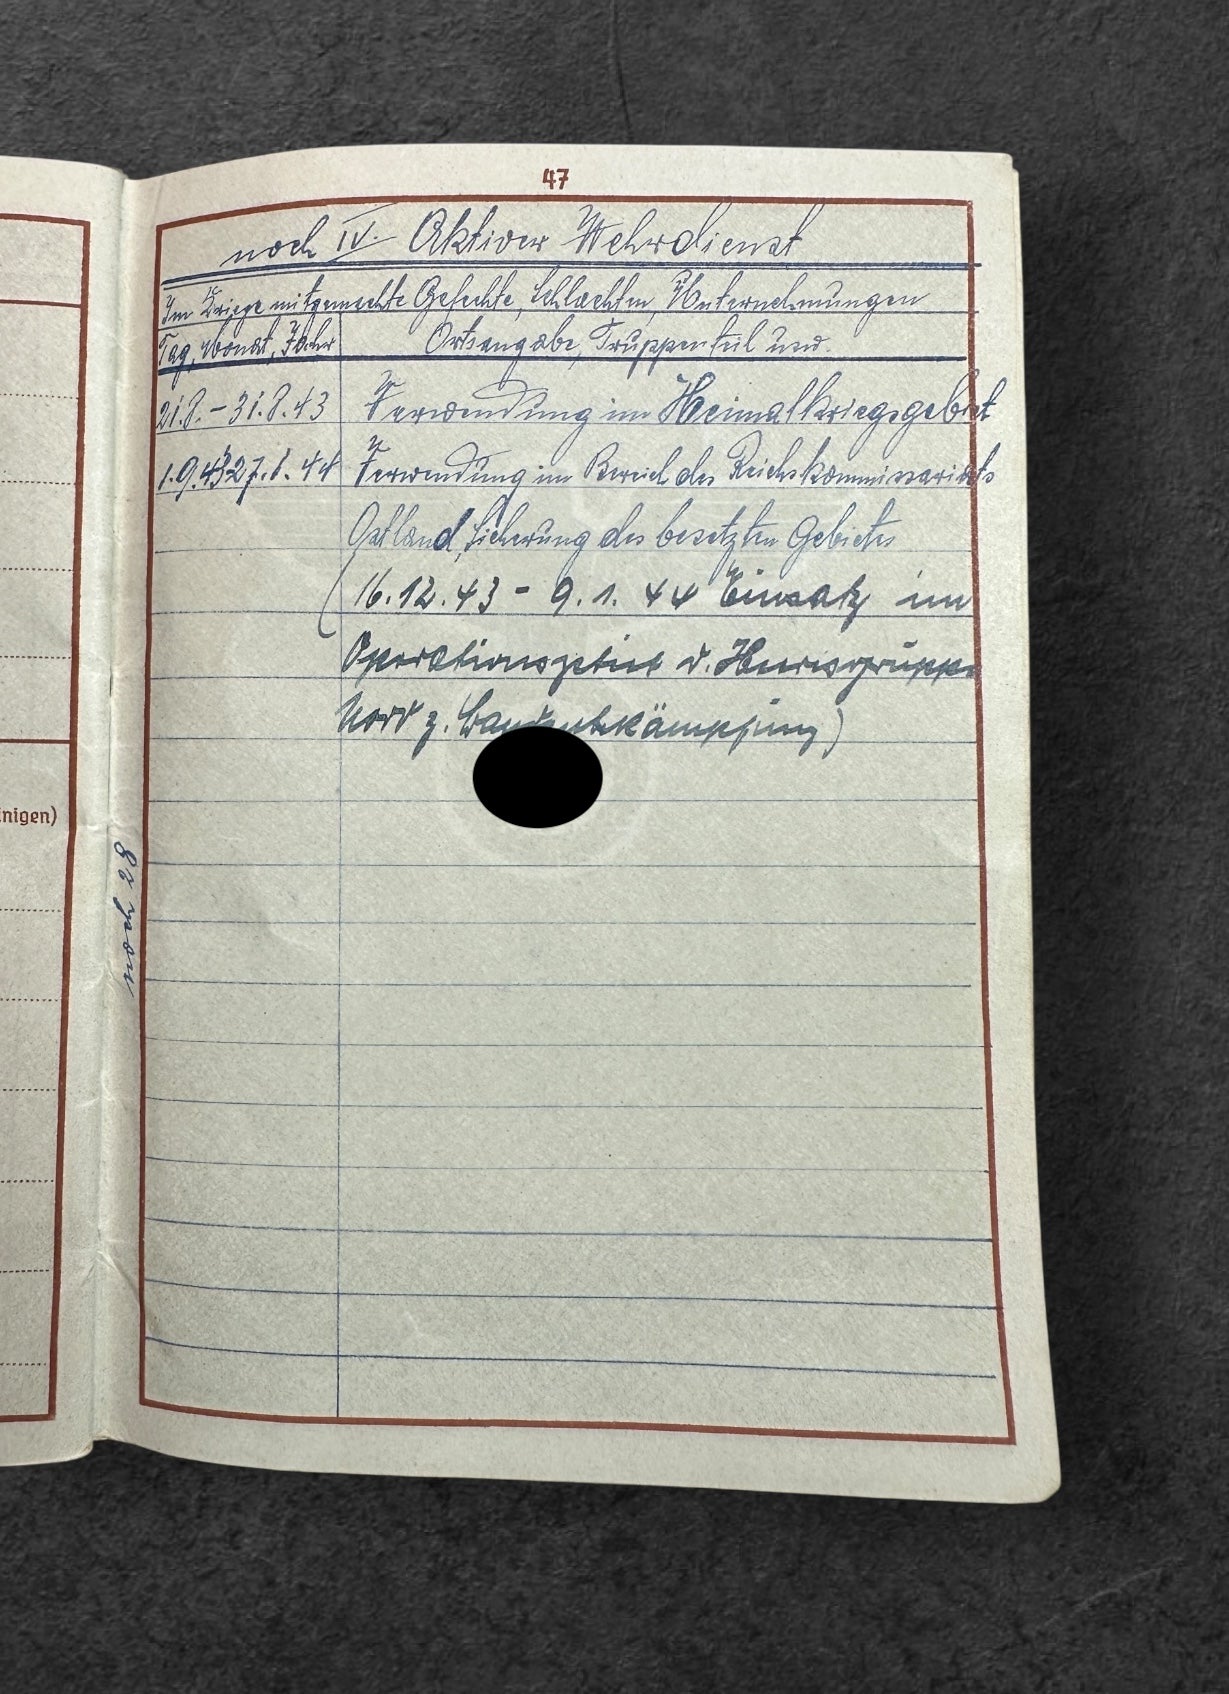 47
noch IV. Aktiver Wehrdienst
Im Kriege mitgemachte Gefechte, Schlachten, Unternehmungen
Tag, Monat, Jahr Ortsangabe, Truppenteil usw.
21.8. - 31.8.43 Verwendung im Heimatkriegsgebiet
1.9.43-27.1.44 Verwendung im Bereich des Reichskommissariats
Ostland, Sicherung des besetzten Gebietes
(16.12.43 - 9.1.44 Einsatz im
Operationsgebiet d. Heeresgruppe
Nord z. Bandenbekämpfung)
inigen)
noch 28